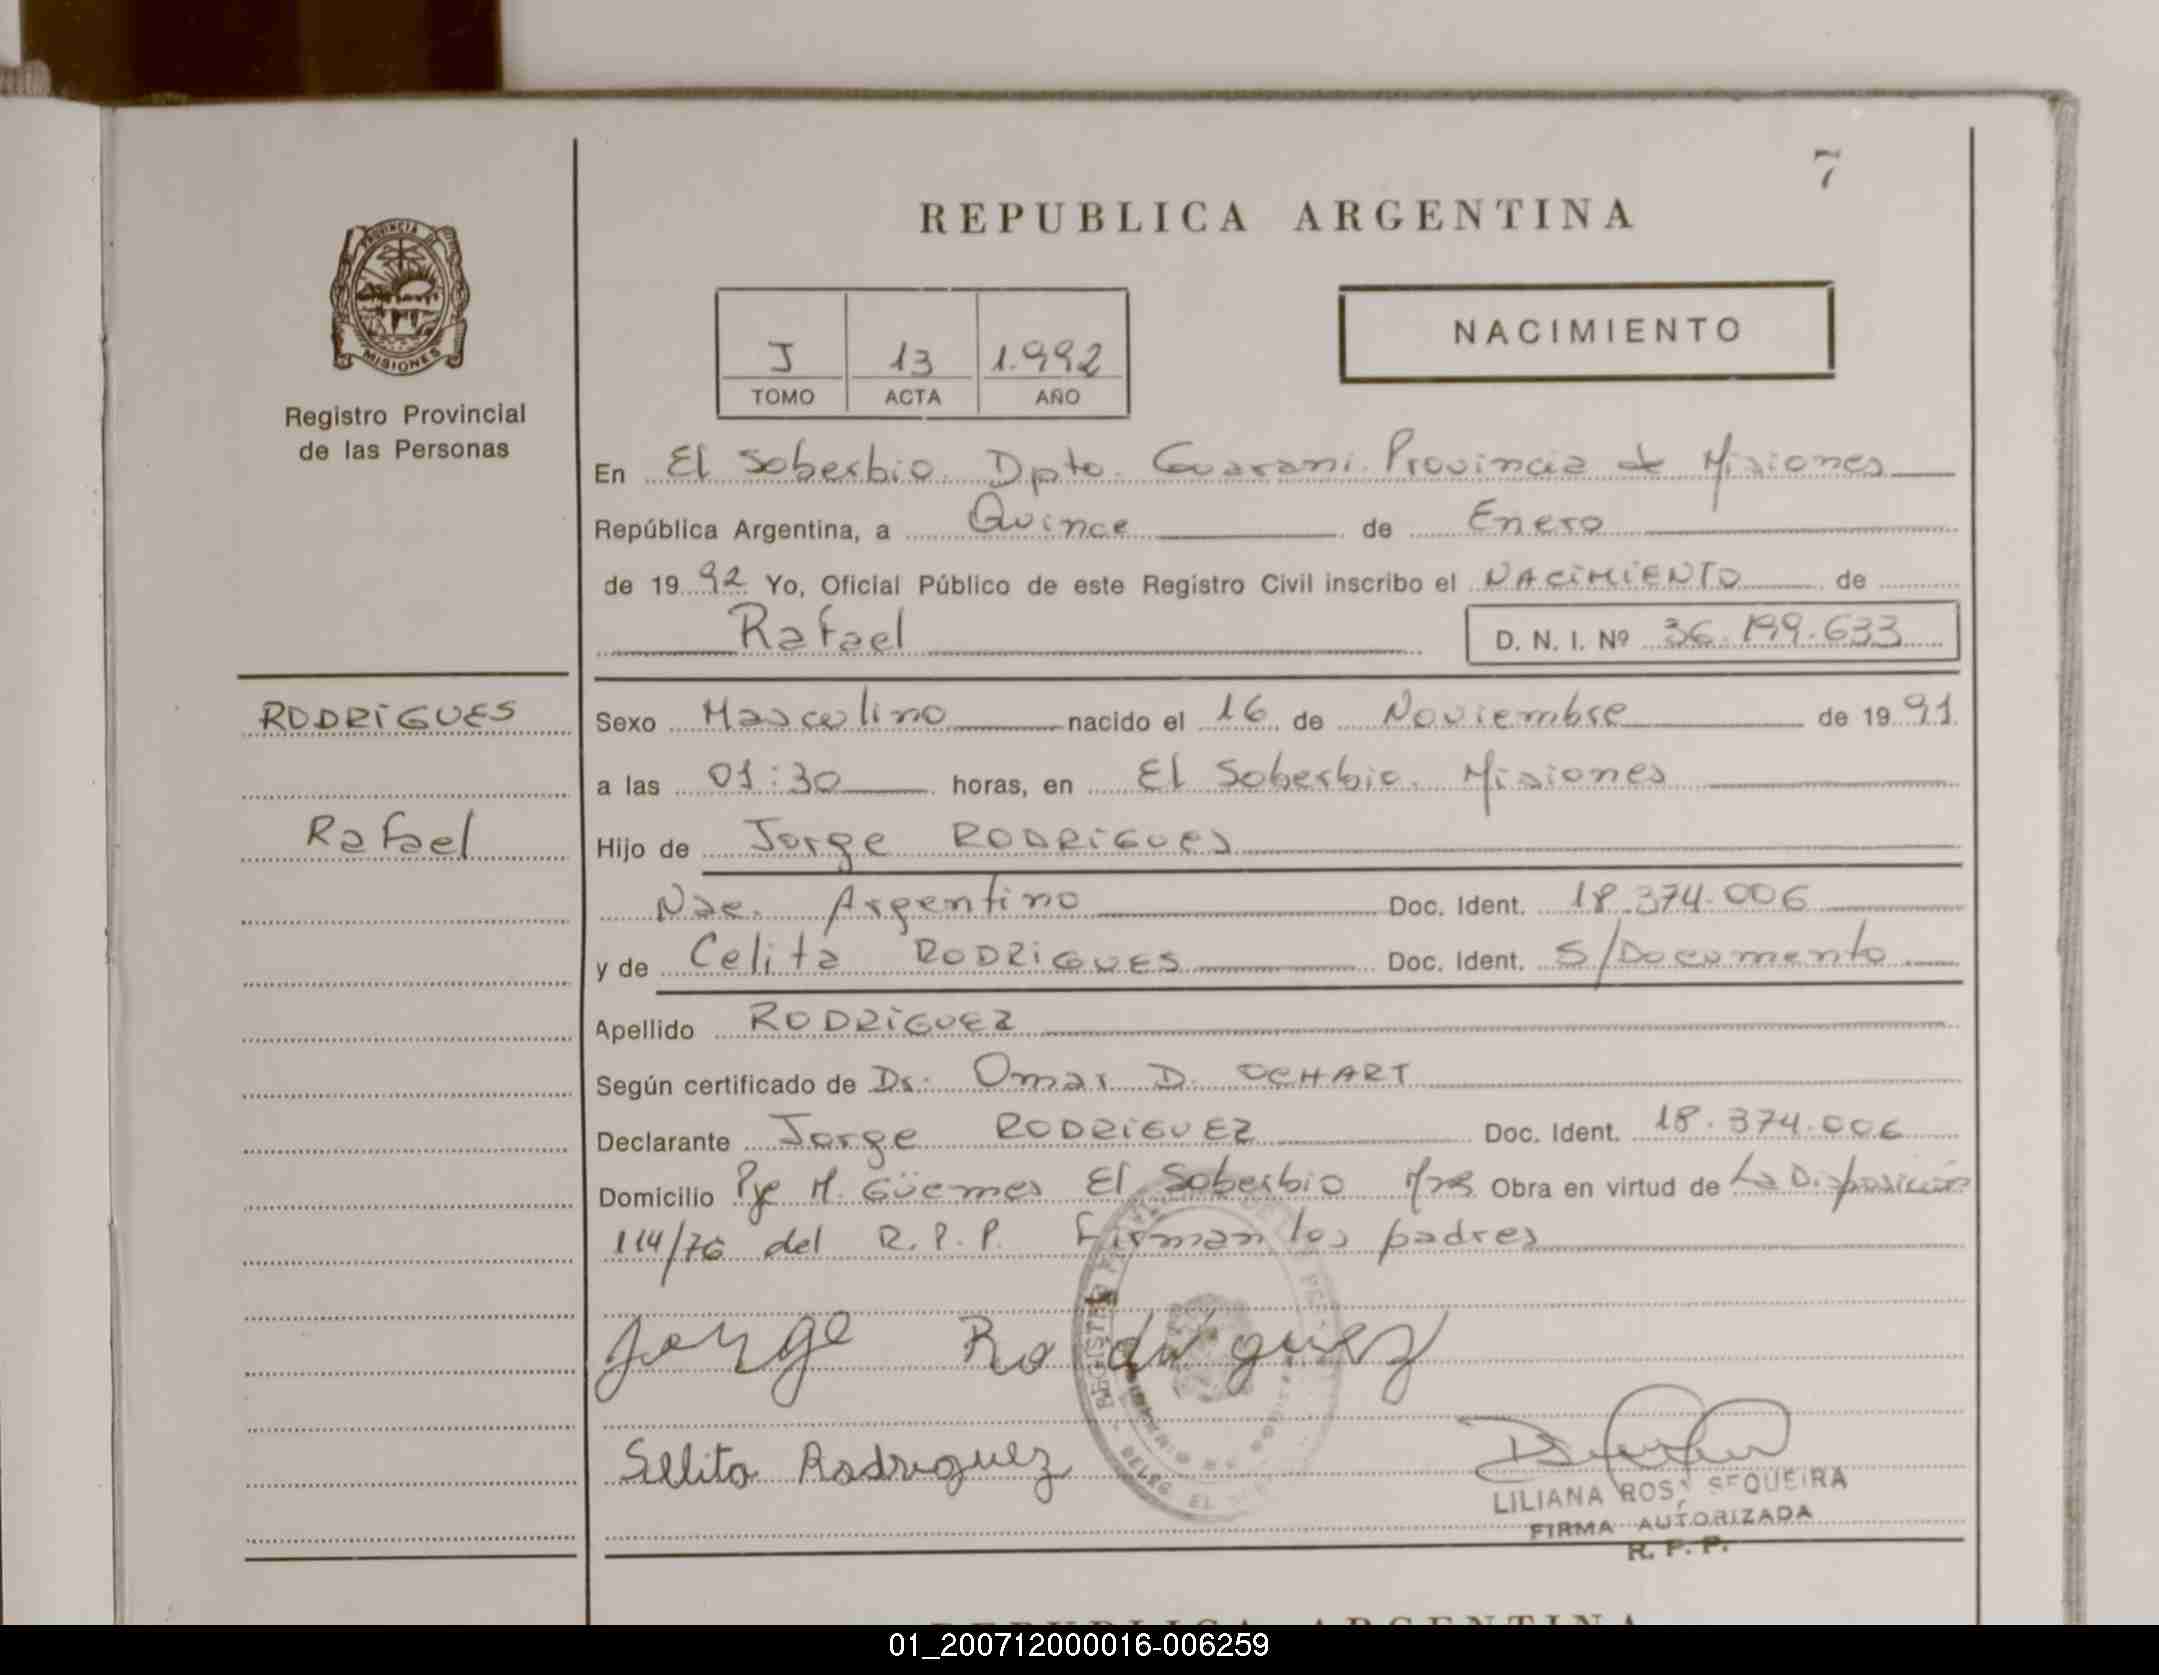 7
REPUBLICA ARGENTINA
PROVINCIA DE
MISIONES
Registro Provincial
de las Personas
J 13 1.992
TOMO ACTA AÑO
NACIMIENTO
En El Soberbio. Dpto. Guarani. Provincia de Misiones
República Argentina, a Quince de Enero
de 19 92 Yo, Oficial Público de este Registro Civil inscribo el NACIMIENTO de
Rafael D. N. I. Nº 36.199.633
RODRIGUES
Sexo Masculino nacido el 16 de Noviembre de 19 91
a las 01:30 horas, en El Soberbio. Misiones
Rafael
Hijo de Jorge RODRIGUES
Nac. Argentino Doc. Ident. 18.374.006
y de Celita RODRIGUES Doc. Ident. S/Documento
Apellido RODRIGUEZ
Según certificado de Dr. Omar D. OCHART
Declarante Jorge RODRIGUEZ Doc. Ident. 18.374.006
Domicilio Pje M. Güemes El Soberbio Mnes Obra en virtud de La Disposición
114/76 del R.P.P. Firman los padres
Jorge Rodriguez
Sellita Rodriguez
LILIANA ROSA SEQUEIRA
FIRMA AUTORIZADA
R. P. P.
REPUBLICA ARGENTINA
01_200712000016-006259